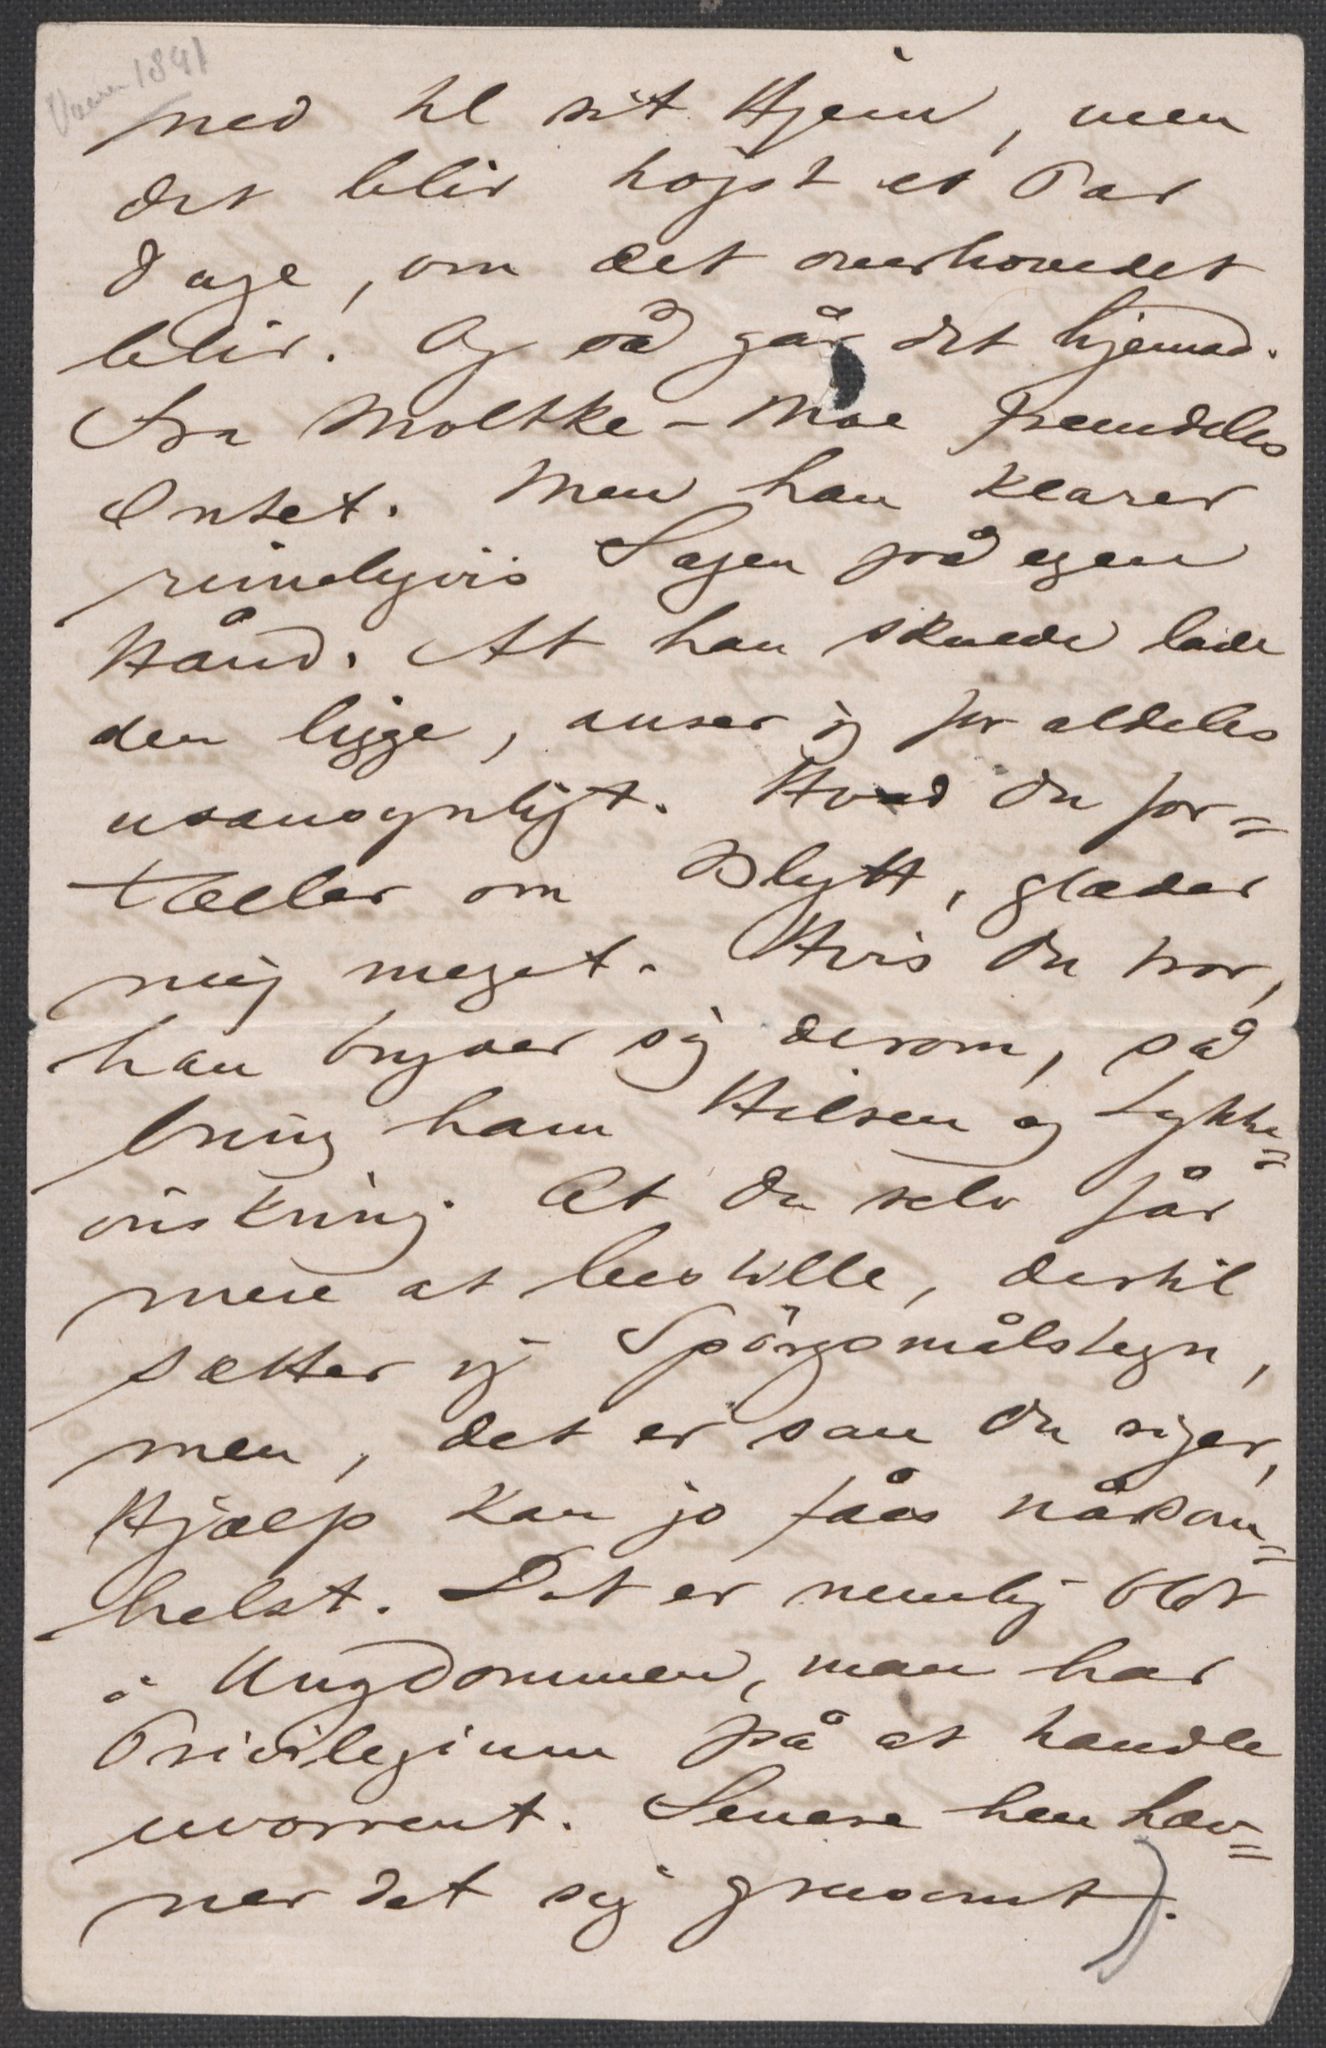 1891
ned til sit Hjem, men
det blir højst et Par
Dage, om det overhovedet
blir. Og så går det hjemad.
Fra Moltke-Moe fremdeles
Intet. Men han klarer
rimeligvis Sagen på egen
Hånd. At han skulde lade
den ligge, anser jeg for aldeles
usandsynligt. Hvad Du for=
tæller om Blytt, glæder
mig meget. Hvis Du tror,
han bryder sig derom, så
bring ham Hilsen og Lykke=
önskning. At Du selv får
mere at bestille, dertil
sætter jeg Spörgsmålstegn,
men, det er som Du siger,
Hjælp kan jo fåes nårsom=
helst. Det er nemlig blot
i Ungdommen, man har
Privilegium på at handle
uvorrent. Senere hen hæv=
ner det sig grusomt).